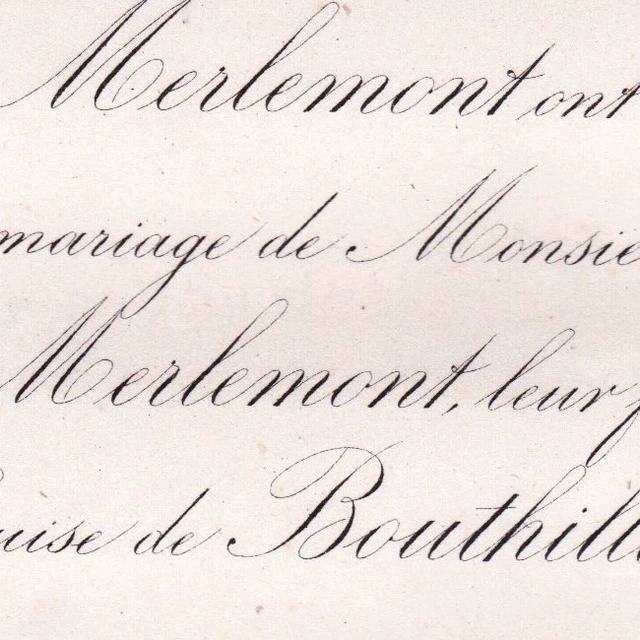 Merlemont ont
mariage de Monsie
Merlemont, leur f
uise de Bouthill